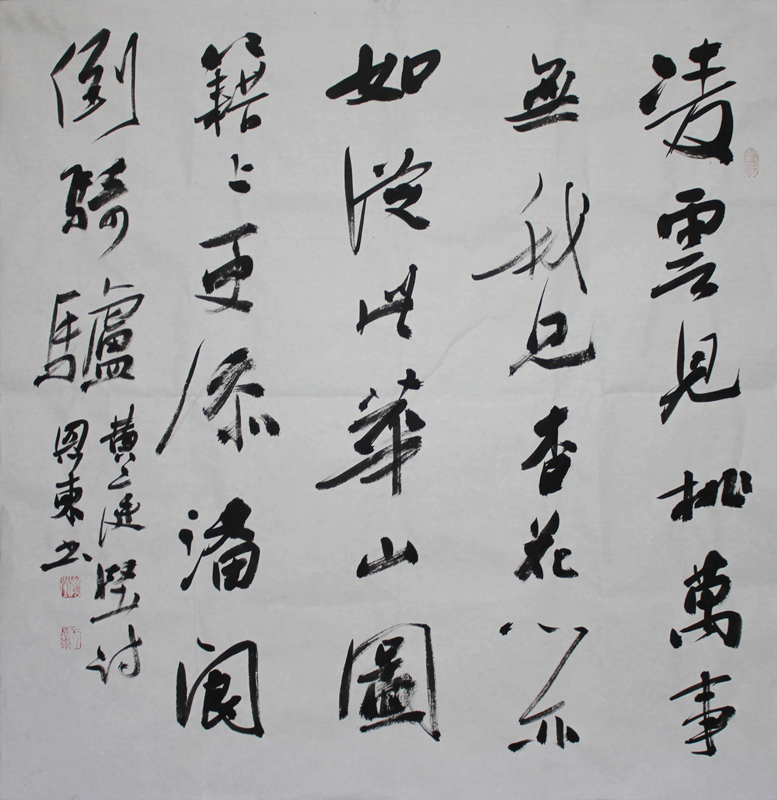 凌雲見桃萬事
無我見杏花心亦
如從此華山圖
籍上更添潘閬
倒騎驢
黃庭堅詩
恩東书